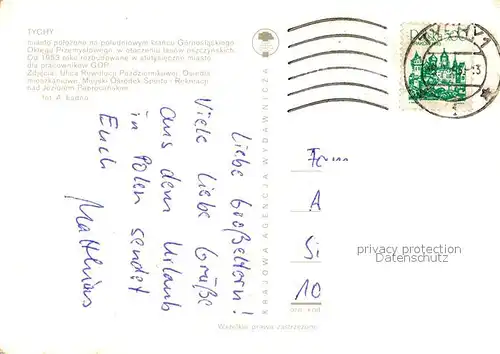 TYCHY
miasto położone na południowym krańcu Górnośląskiego
Okręgu Przemysłowego w otoczeniu lasów pszczyńskich.
Od 1953 roku rozbudowane w stutysięczne miasto
dla pracowników GOP
Zdjęcia: Ulica Rewolucji Październikowej, Osiedla
mieszkaniowe, Miejski Ośrodek Sportu i Rekreacji
nad Jeziorem Paprocańskim
fot. A.
Liebe Großeltern!
Viele liebe Grüße
aus dem Urlaub
in Polen sendet
Euch
Matthias
KRAJOWA AGENCJA WYDAWNICZA
TYCHY 1
A
Si
10
privacy protection
Datenschutz
Wszelkie prawa zastrzeżone